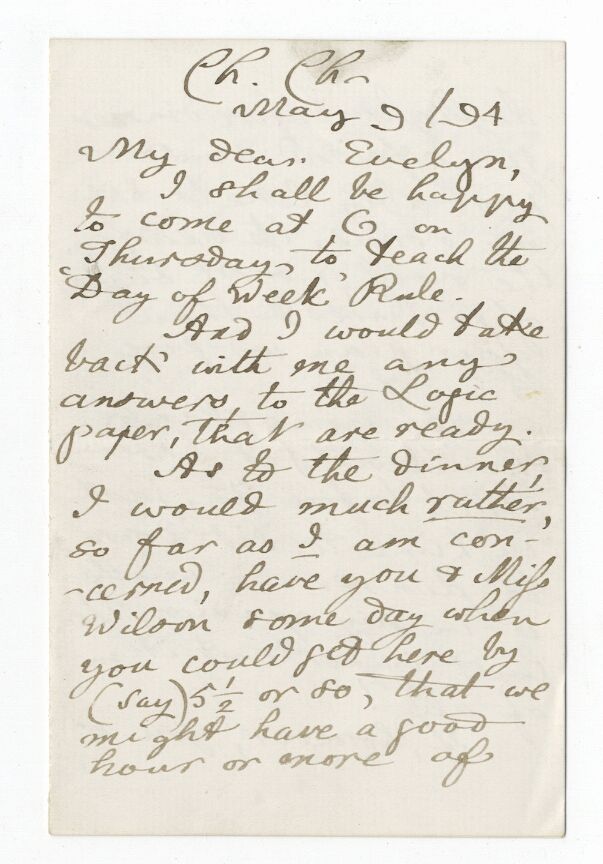 Ch. Ch.
May 9/94
My dear Evelyn,
I shall be happy
to come at 6 on
Thursday, to teach the
"Day of Week" Rule.
And I would take
back with me any
answers, to the Logic
paper, that are ready.
As to the dinner,
I would much rather,
so far as I am con-
-cerned, have you & Miss
Wilson some day when
you could get here by
(say) 5½ or so, that we
might have a good
hour or more of